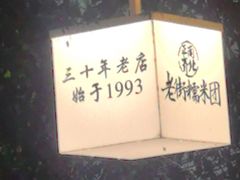 三十年老店
始于1993
老街糯米团